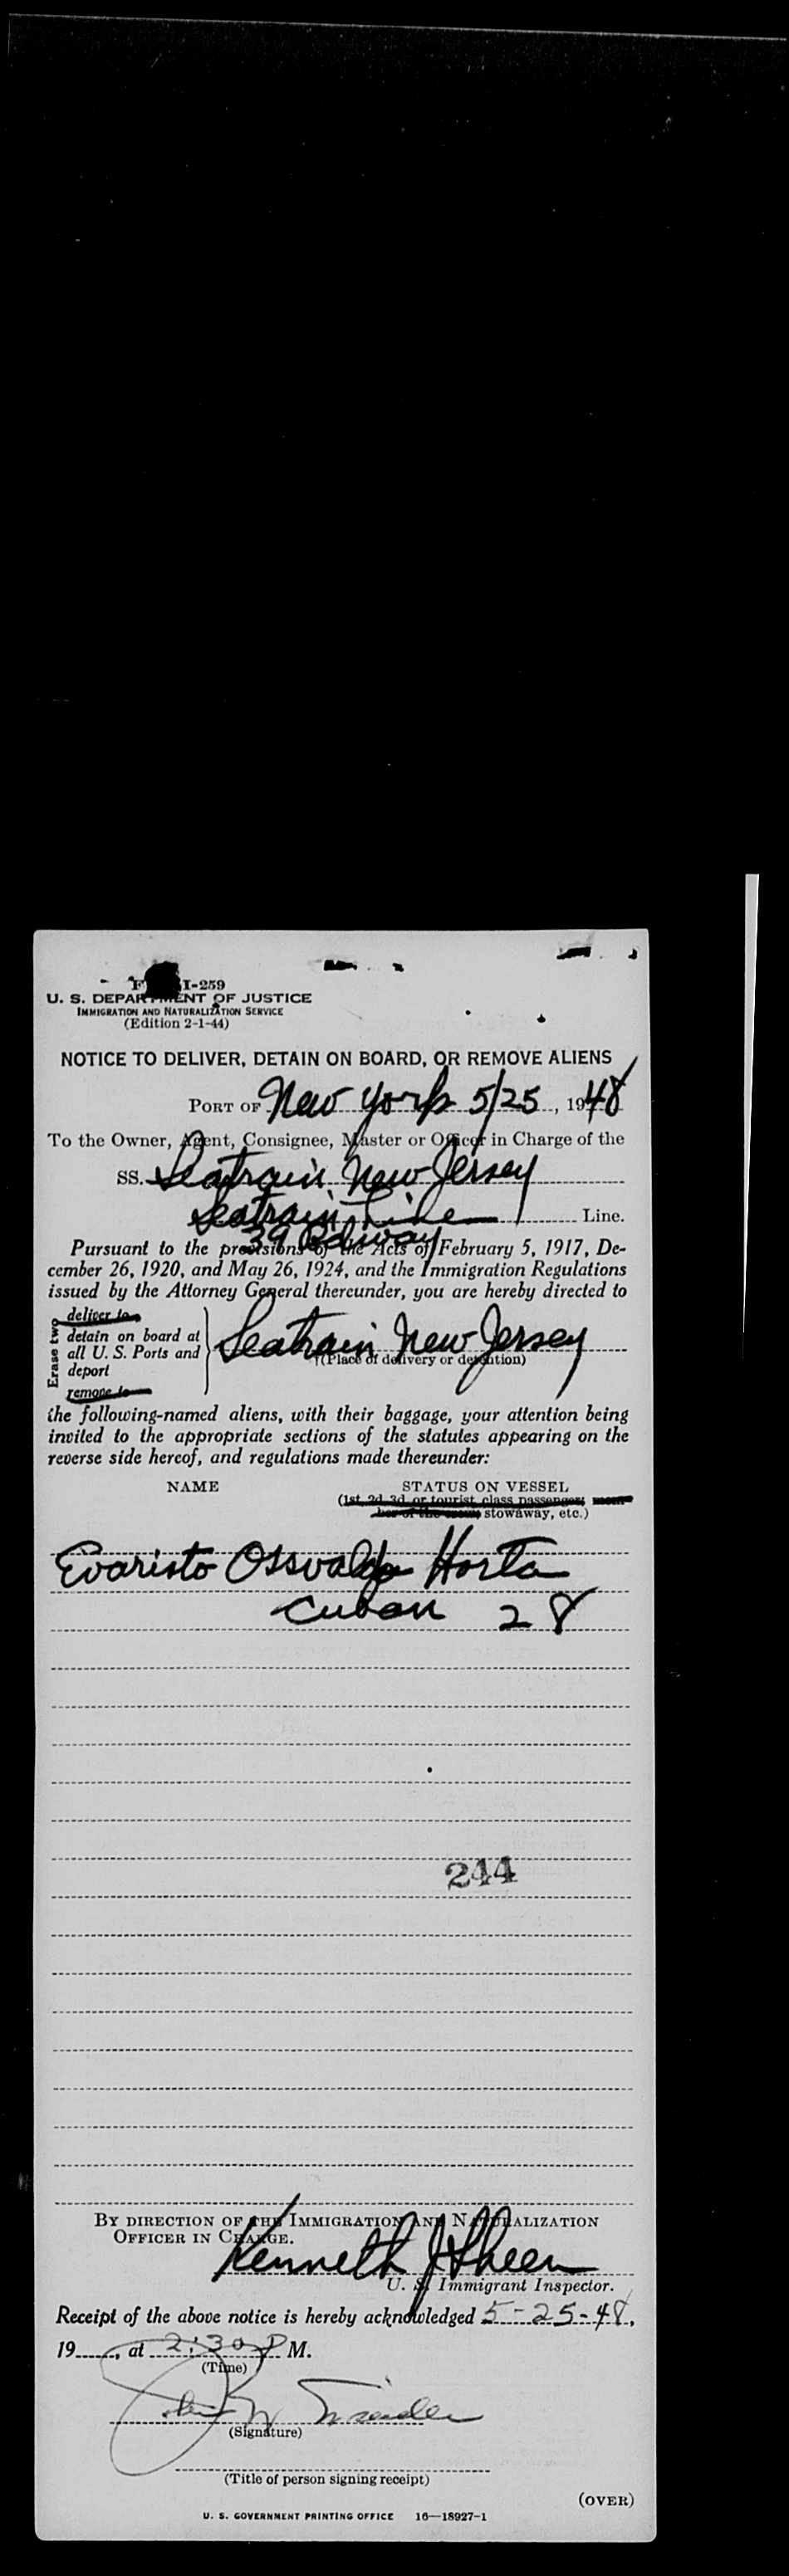 I-259
U. S. DEPARTMENT OF JUSTICE
IMMIGRATION AND NATURALIZATION SERVICE
(Edition 2-1-44)
NOTICE TO DELIVER, DETAIN ON BOARD, OR REMOVE ALIENS
PORT OF New York 5/25, 1948
To the Owner, Agent, Consignee, Master or Officer in Charge of the
SS. Seatrain New Jersey
Seatrain Line Line.
39 Bdway
Pursuant to the provisions of the Acts of February 5, 1917, De-
cember 26, 1920, and May 26, 1924, and the Immigration Regulations
issued by the Attorney General thereunder, you are hereby directed to
Erase two
deliver to
detain on board at
all U. S. Ports and
deport
remove to
Seatrain New Jersey
†(Place of delivery or detention)
the following-named aliens, with their baggage, your attention being
invited to the appropriate sections of the statutes appearing on the
reverse side hereof, and regulations made thereunder:
NAME STATUS ON VESSEL
(1st, 2d, 3d, or tourist class passenger, mem-
ber of the crew, stowaway, etc.)
Evaristo Ossvaldo Horta
Cuban 28
244
BY DIRECTION OF THE IMMIGRATION AND NATURALIZATION
OFFICER IN CHARGE.
Kenneth J Sheen
U. S. Immigrant Inspector.
Receipt of the above notice is hereby acknowledged 5-25-48,
19, at 2:30 P M.
(Time)
(Signature)
(Title of person signing receipt)
(OVER)
U. S. GOVERNMENT PRINTING OFFICE 16—18927-1